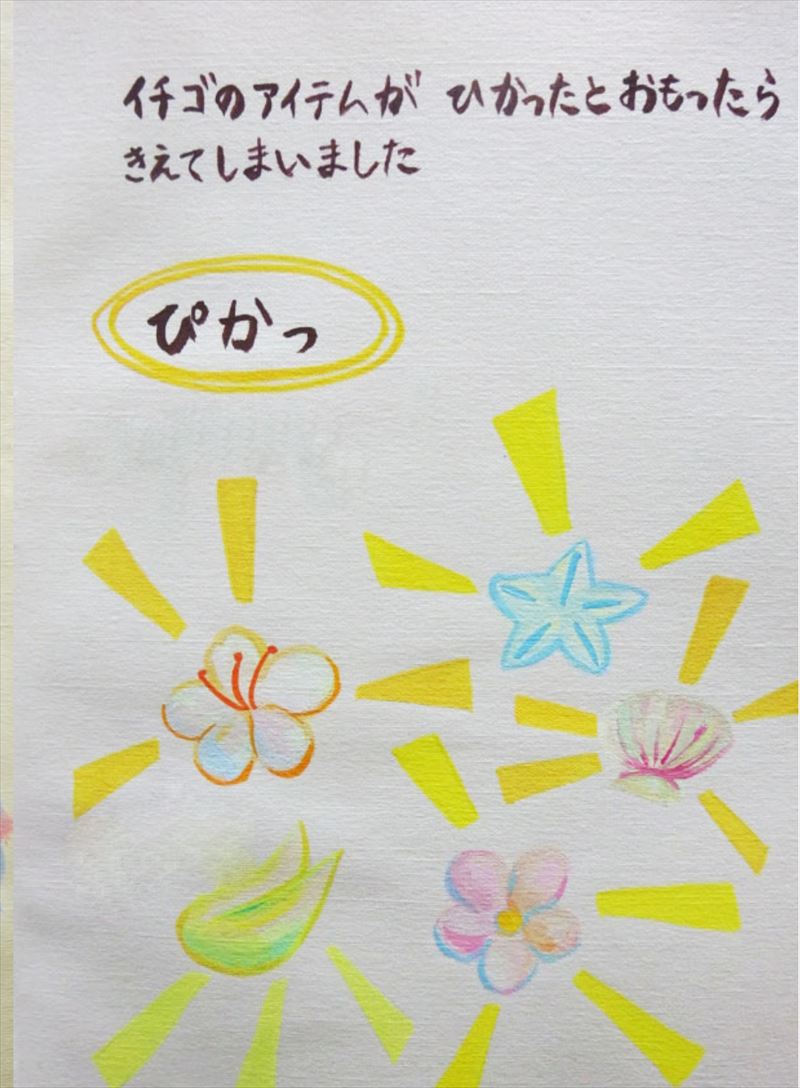 イチゴのアイテムが ひかったとおもったら
きえてしまいました
ぴかっ